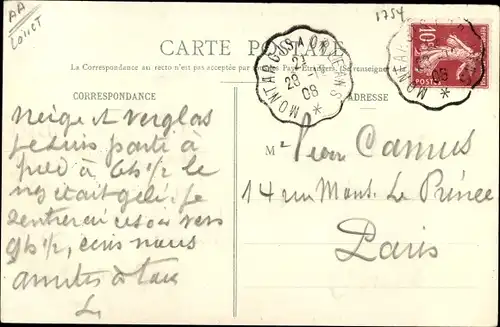 AA
Loiret
1754
CARTE POSTALE
La Correspondance au recto n'est pas acceptée par
Pays Étrangers, (se renseigner
CORRESPONDANCE
ADRESSE
MONTARGIS A ORLEANS
08
MONTARGIS
08
10
POST
Neige et verglas
je suis parti à
pied à 6h1/2 le
nez était gelé. Je
rentrerai ce soir vers
9h1/2,
amitiés à tous
L
Mr Pierre Camus
14 rue Mons. Le Prince
Paris